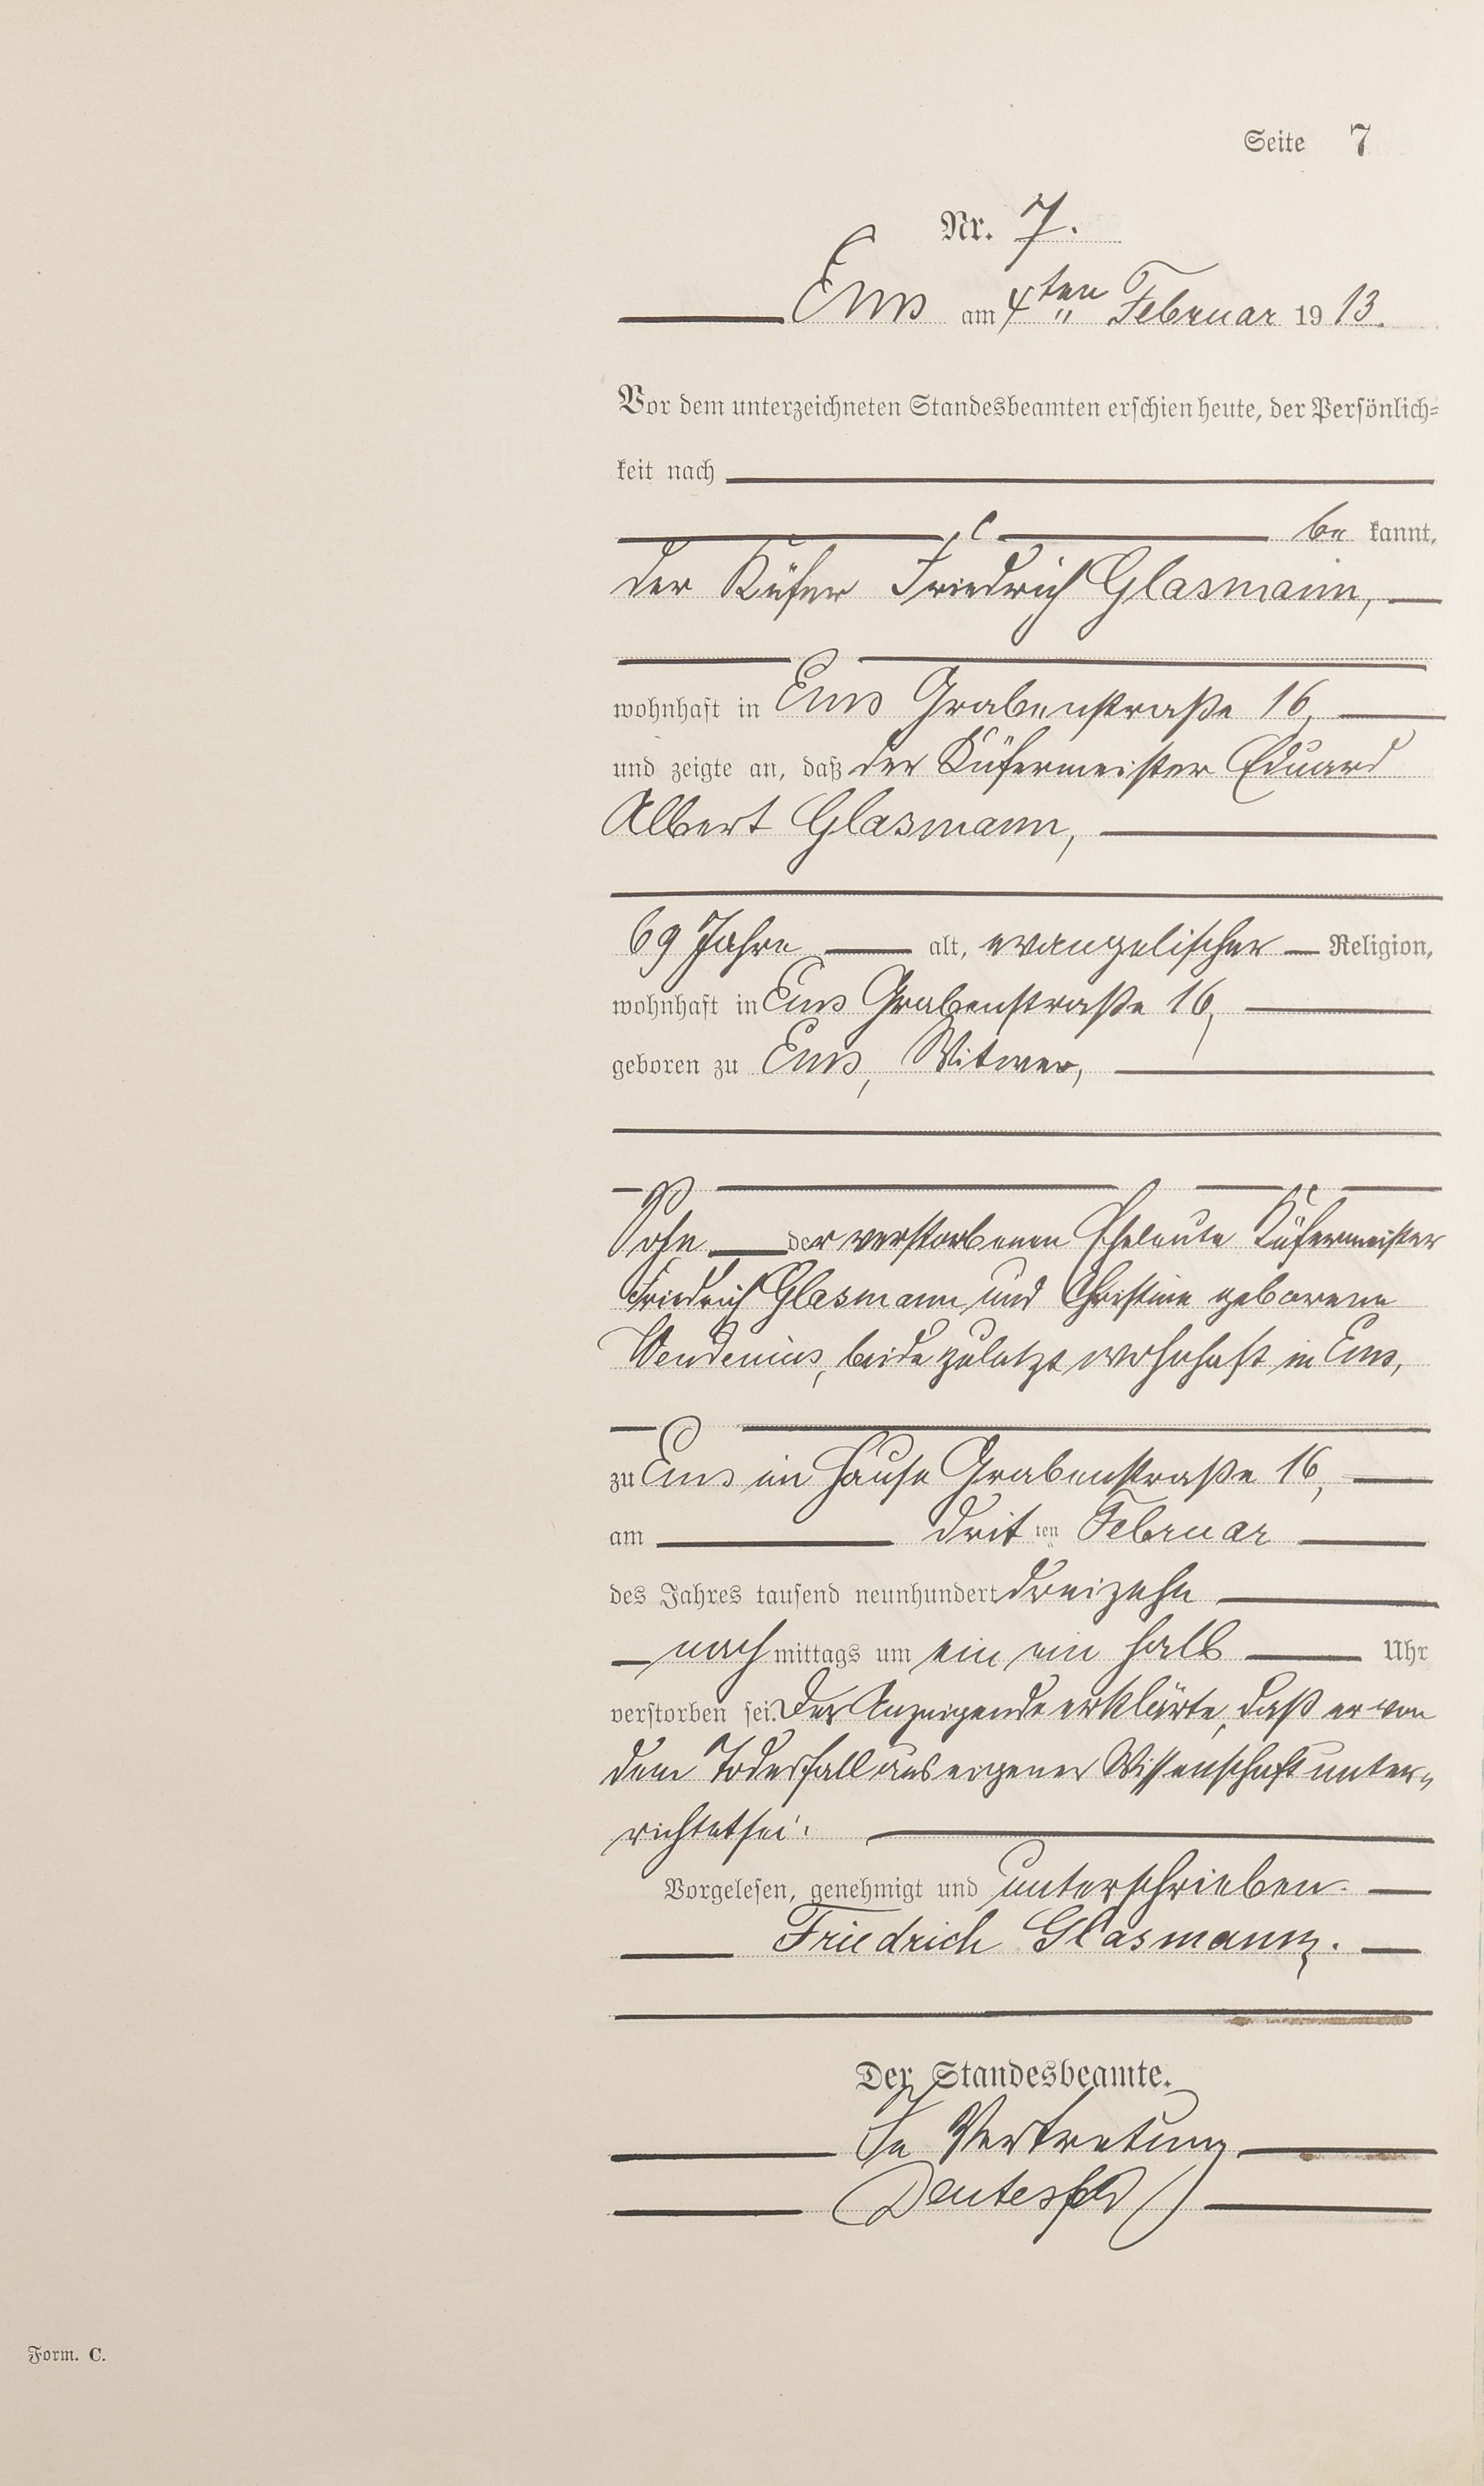 Seite 7
Nr. 7.
Ems am 4ten Februar 1913.
Vor dem unterzeichneten Standesbeamten erschien heute, der Persönlich=
keit nach
be kannt,
der Küfer Friedrich Glasmann,
wohnhaft in Ems Grabenstraße 16,
und zeigte an, daß der Küfermeister Eduard
Albert Glasmann,
69 Jahre alt, evangelischer Religion,
wohnhaft in Ems Grabenstraße 16,
geboren zu Ems, Witwer,
Sohn der verstorbenen Eheleute Küfermeister
Friedrich Glasmann und Christine geborene
Wendenius, beide zuletzt wohnhaft in Ems,
zu Ems im Hause Grabenstraße 16,
am dritten Februar
des Jahres tausend neunhundert dreizehn
nachmittags um ein ein halb Uhr
verstorben sei. Der Anzeigende erklärte, daß er von
dem Todesfall aus eigener Wissenschaft unter„
richtet sei.
Vorgelesen, genehmigt und unterschrieben.
Friedrich Glasmann.
Der Standesbeamte.
In Vertretung
Form. C.